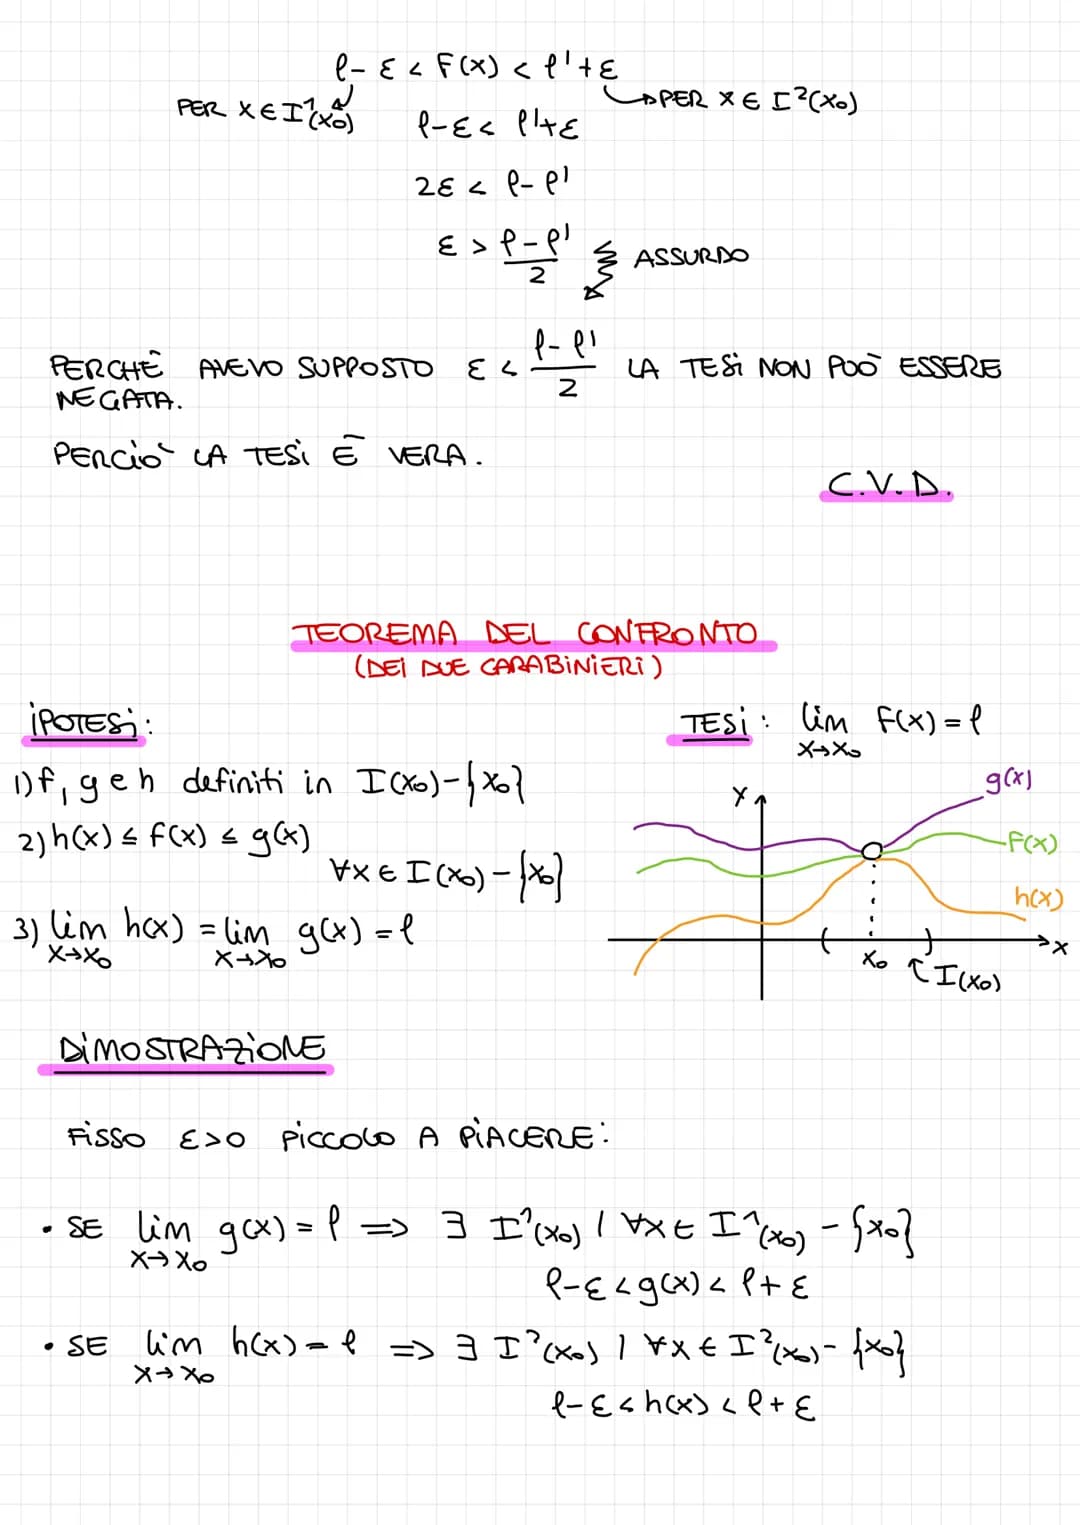 ℓ-ε < F(x) < ℓ'+ε
PER X∈I¹(x₀) → PER X∈I²(x₀)
ℓ-ε < ℓ'+ε
2ε < ℓ-ℓ'
ε > (ℓ-ℓ')/2 ASSURDO
PERCHÈ AVEVO SUPPOSTO ε < (ℓ-ℓ')/2 LA TESI NON PUÒ ESSERE
NEGATA.
PERCIÒ LA TESI È VERA.
C.V.D.
TEOREMA DEL CONFRONTO
(DEI DUE CARABINIERI)
IPOTESI:
TESI: lim F(x) = ℓ
x→x₀
1) f, g e h definiti in I(x₀)-{x₀}
2) h(x) ≤ f(x) ≤ g(x)
∀x ∈ I(x₀)-{x₀}
3) lim h(x) = lim g(x) = ℓ
x→x₀ x→x₀
Y
g(x)
F(x)
h(x)
X
x₀ I(x₀)
DIMOSTRAZIONE
FISSO ε>0 PICCOLO A PIACERE:
• SE lim g(x) = ℓ => ∃ I¹(x₀) / ∀x ∈ I¹(x₀) - {x₀}
x→x₀
ℓ-ε < g(x) < ℓ+ε
• SE lim h(x) = ℓ => ∃ I²(x₀) / ∀x ∈ I²(x₀) - {x₀}
x→x₀
ℓ-ε < h(x) < ℓ+ε